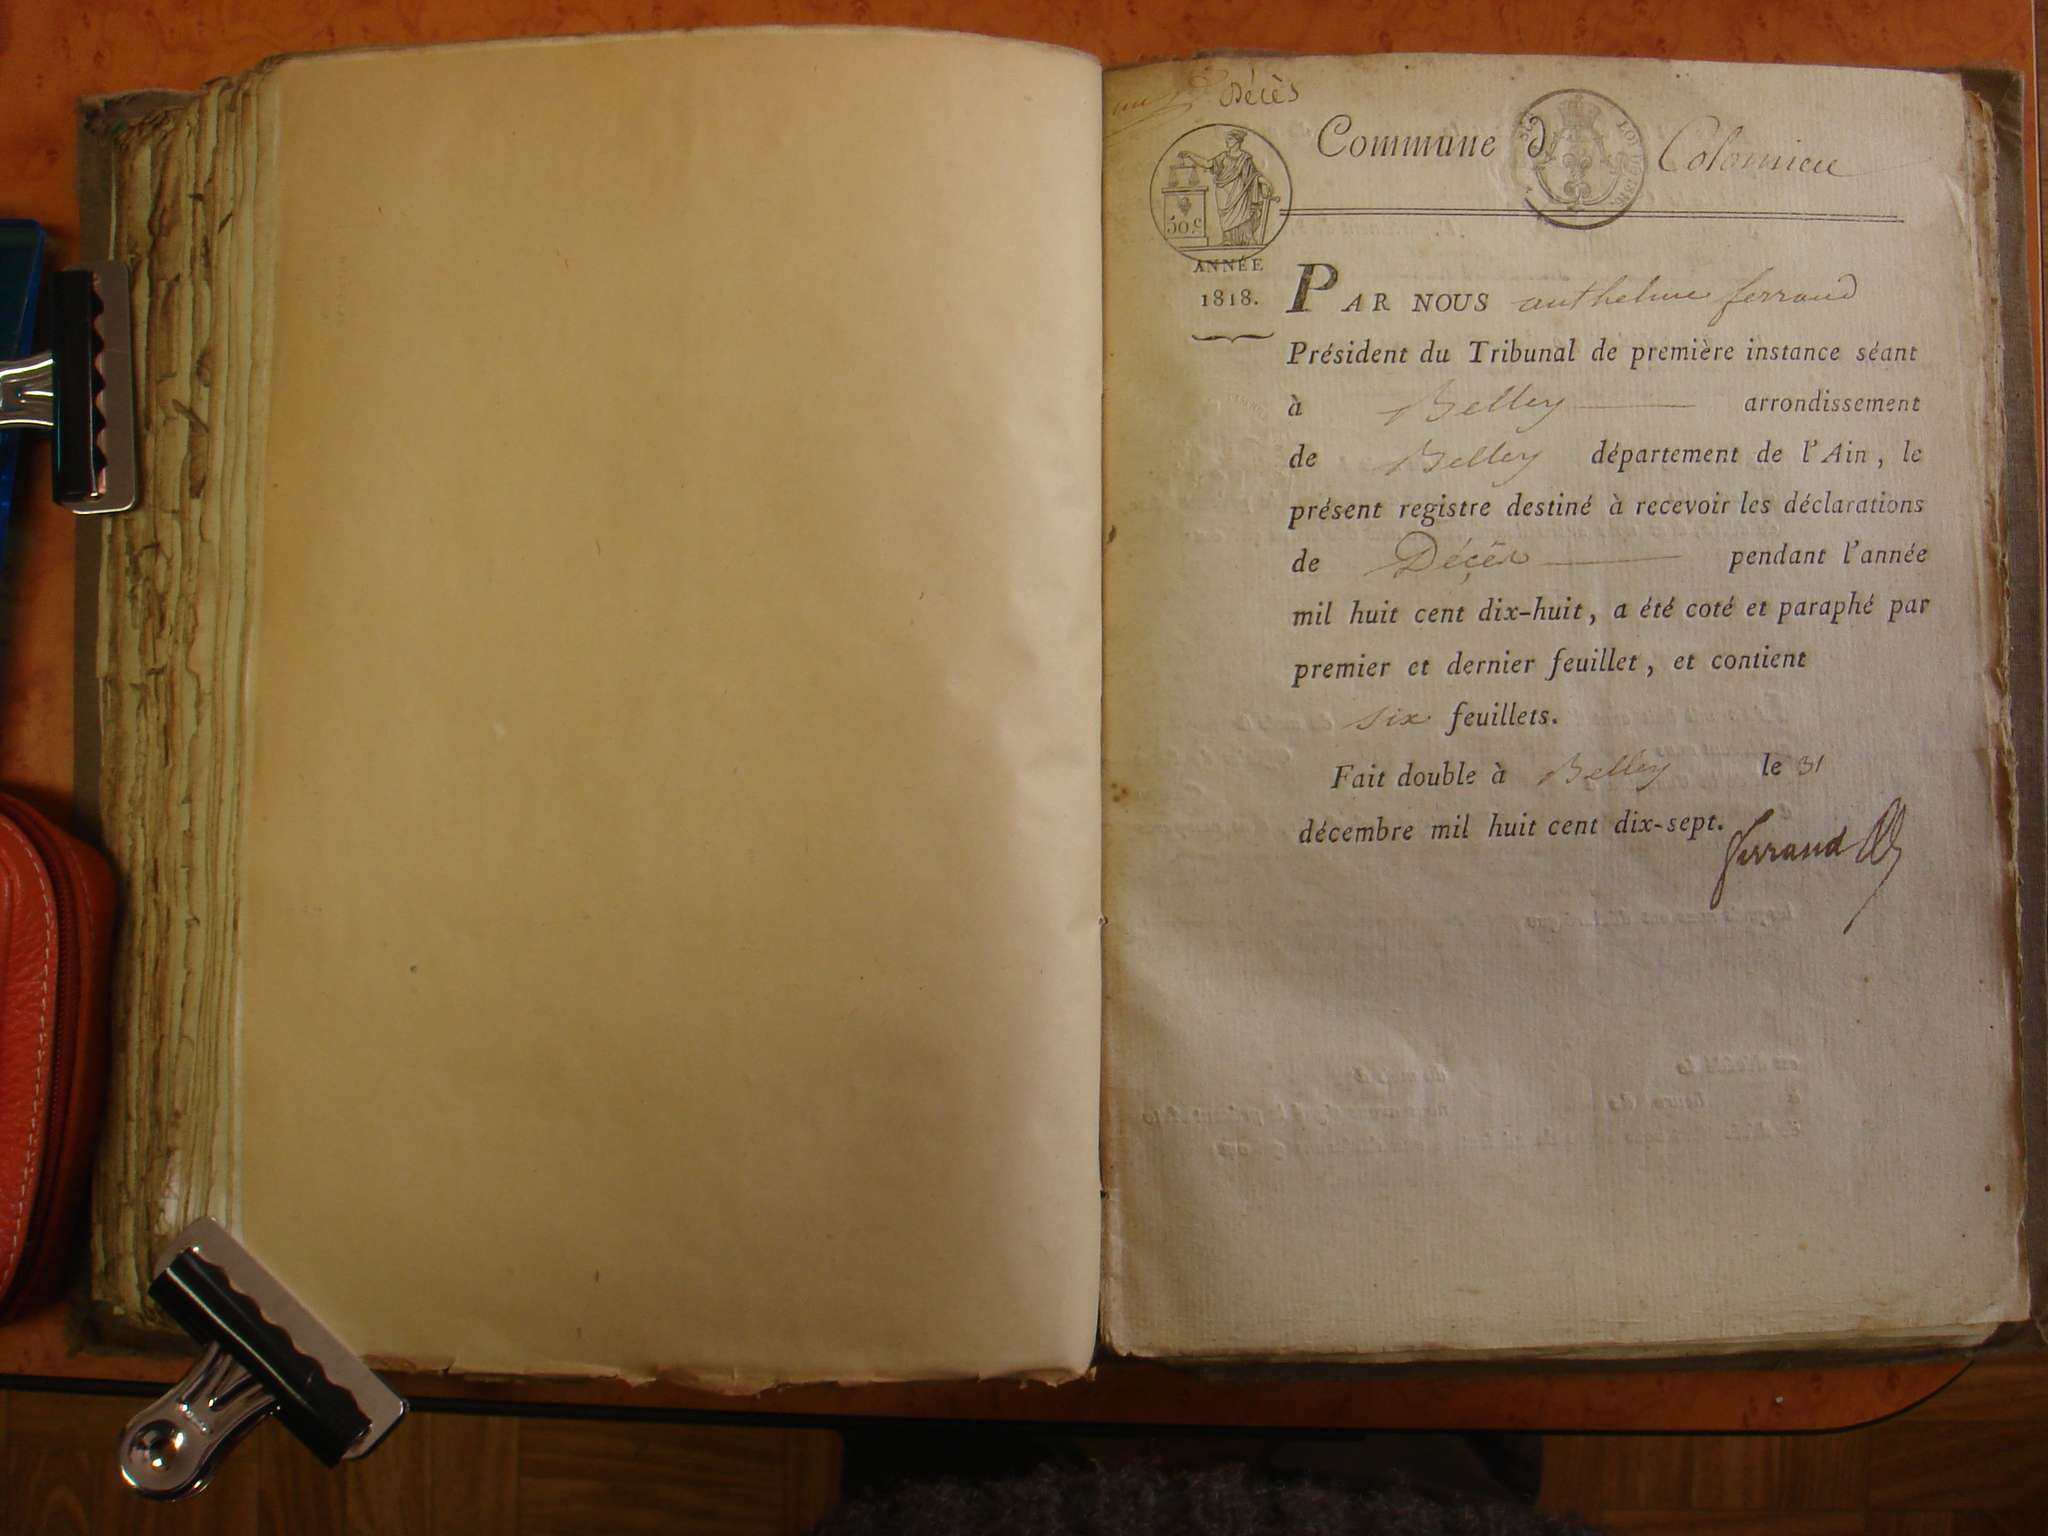 Décès
Commune d Colomieu
50 c
ANNÉE
1818.
PAR NOUS anthelme ferrand
Président du Tribunal de première instance séant
à Belley arrondissement
de Belley département de l'Ain, le
présent registre destiné à recevoir les déclarations
de Décès pendant l'année
mil huit cent dix-huit, a été coté et paraphé par
premier et dernier feuillet, et contient
six feuillets.
Fait double à Belley le 31
décembre mil huit cent dix-sept.
ferrand